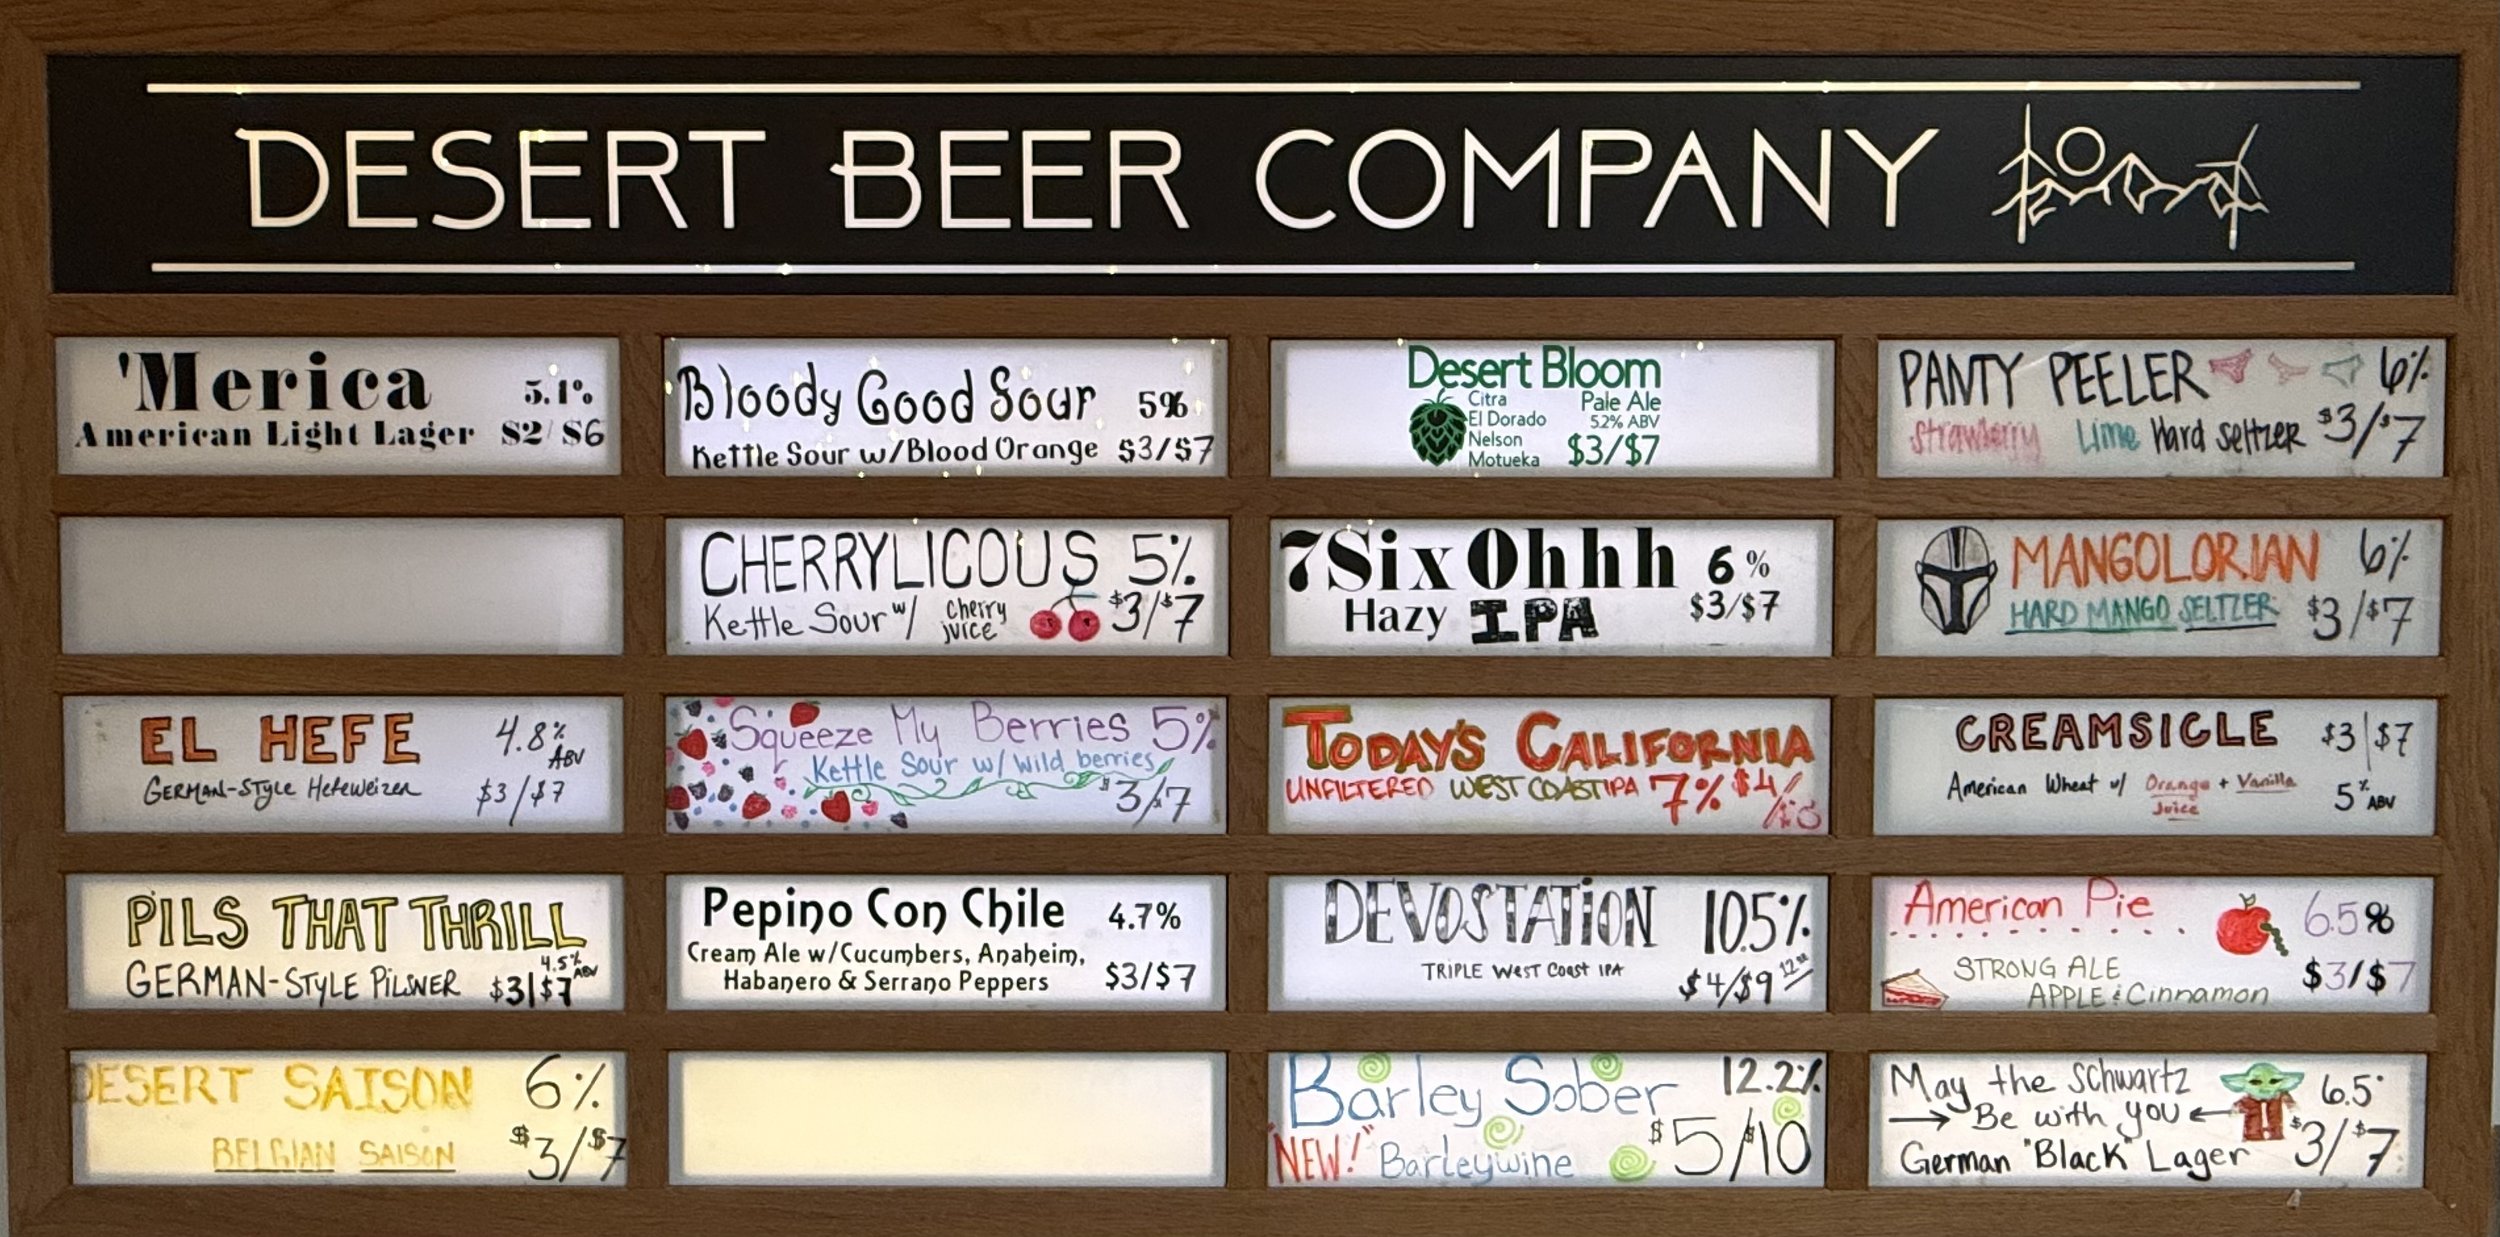 DESERT BEER COMPANY
'Merica 5.1%
American Light Lager $2/$6
EL HEFE 4.8% ABV
GERMAN-STYLE Hefeweizen $3/$7
PILS THAT THRILL
4.5% ABV
GERMAN-STYLE PILSNER $3|$7
DESERT SAISON 6%
BELGIAN SAISON $3/$7
Bloody Good Sour 5%
Kettle Sour w/Blood Orange $3/$7
CHERRYLICOUS 5%
Kettle Sour w/ cherry juice $3/$7
Squeeze My Berries 5%
Kettle Sour w/ wild berries
$3/$7
Pepino Con Chile 4.7%
Cream Ale w/Cucumbers, Anaheim,
Habanero & Serrano Peppers $3/$7
Desert Bloom
Citra Pale Ale
El Dorado 5.2% ABV
Nelson
Motueka $3/$7
7Six Ohhh 6%
Hazy IPA $3/$7
TODAY'S CALIFORNIA
UNFILTERED WEST COAST IPA 7% $4/
DEVOSTATION 10.5%
TRIPLE WEST COAST IPA
$4/$9 12oz
Barley Sober 12.2%
"NEW!" Barleywine $5/$10
PANTY PEELER 6%
Strawberry Lime Hard seltzer $3/$7
MANGOLORIAN 6%
HARD MANGO SELTZER $3/$7
CREAMSICLE $3|$7
American Wheat w/ Orange + Vanilla
Juice 5% ABV
American Pie 6.5%
STRONG ALE
APPLE & Cinnamon $3/$7
May the Schwartz 6.5
Be with you
German "Black" Lager $3/$7